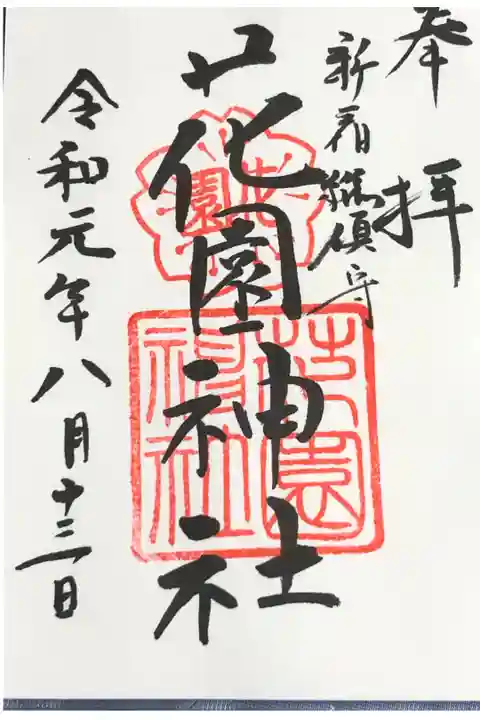 奉拝
新宿総鎮守
花園神社
令和元年八月十三日
花園
花園神社